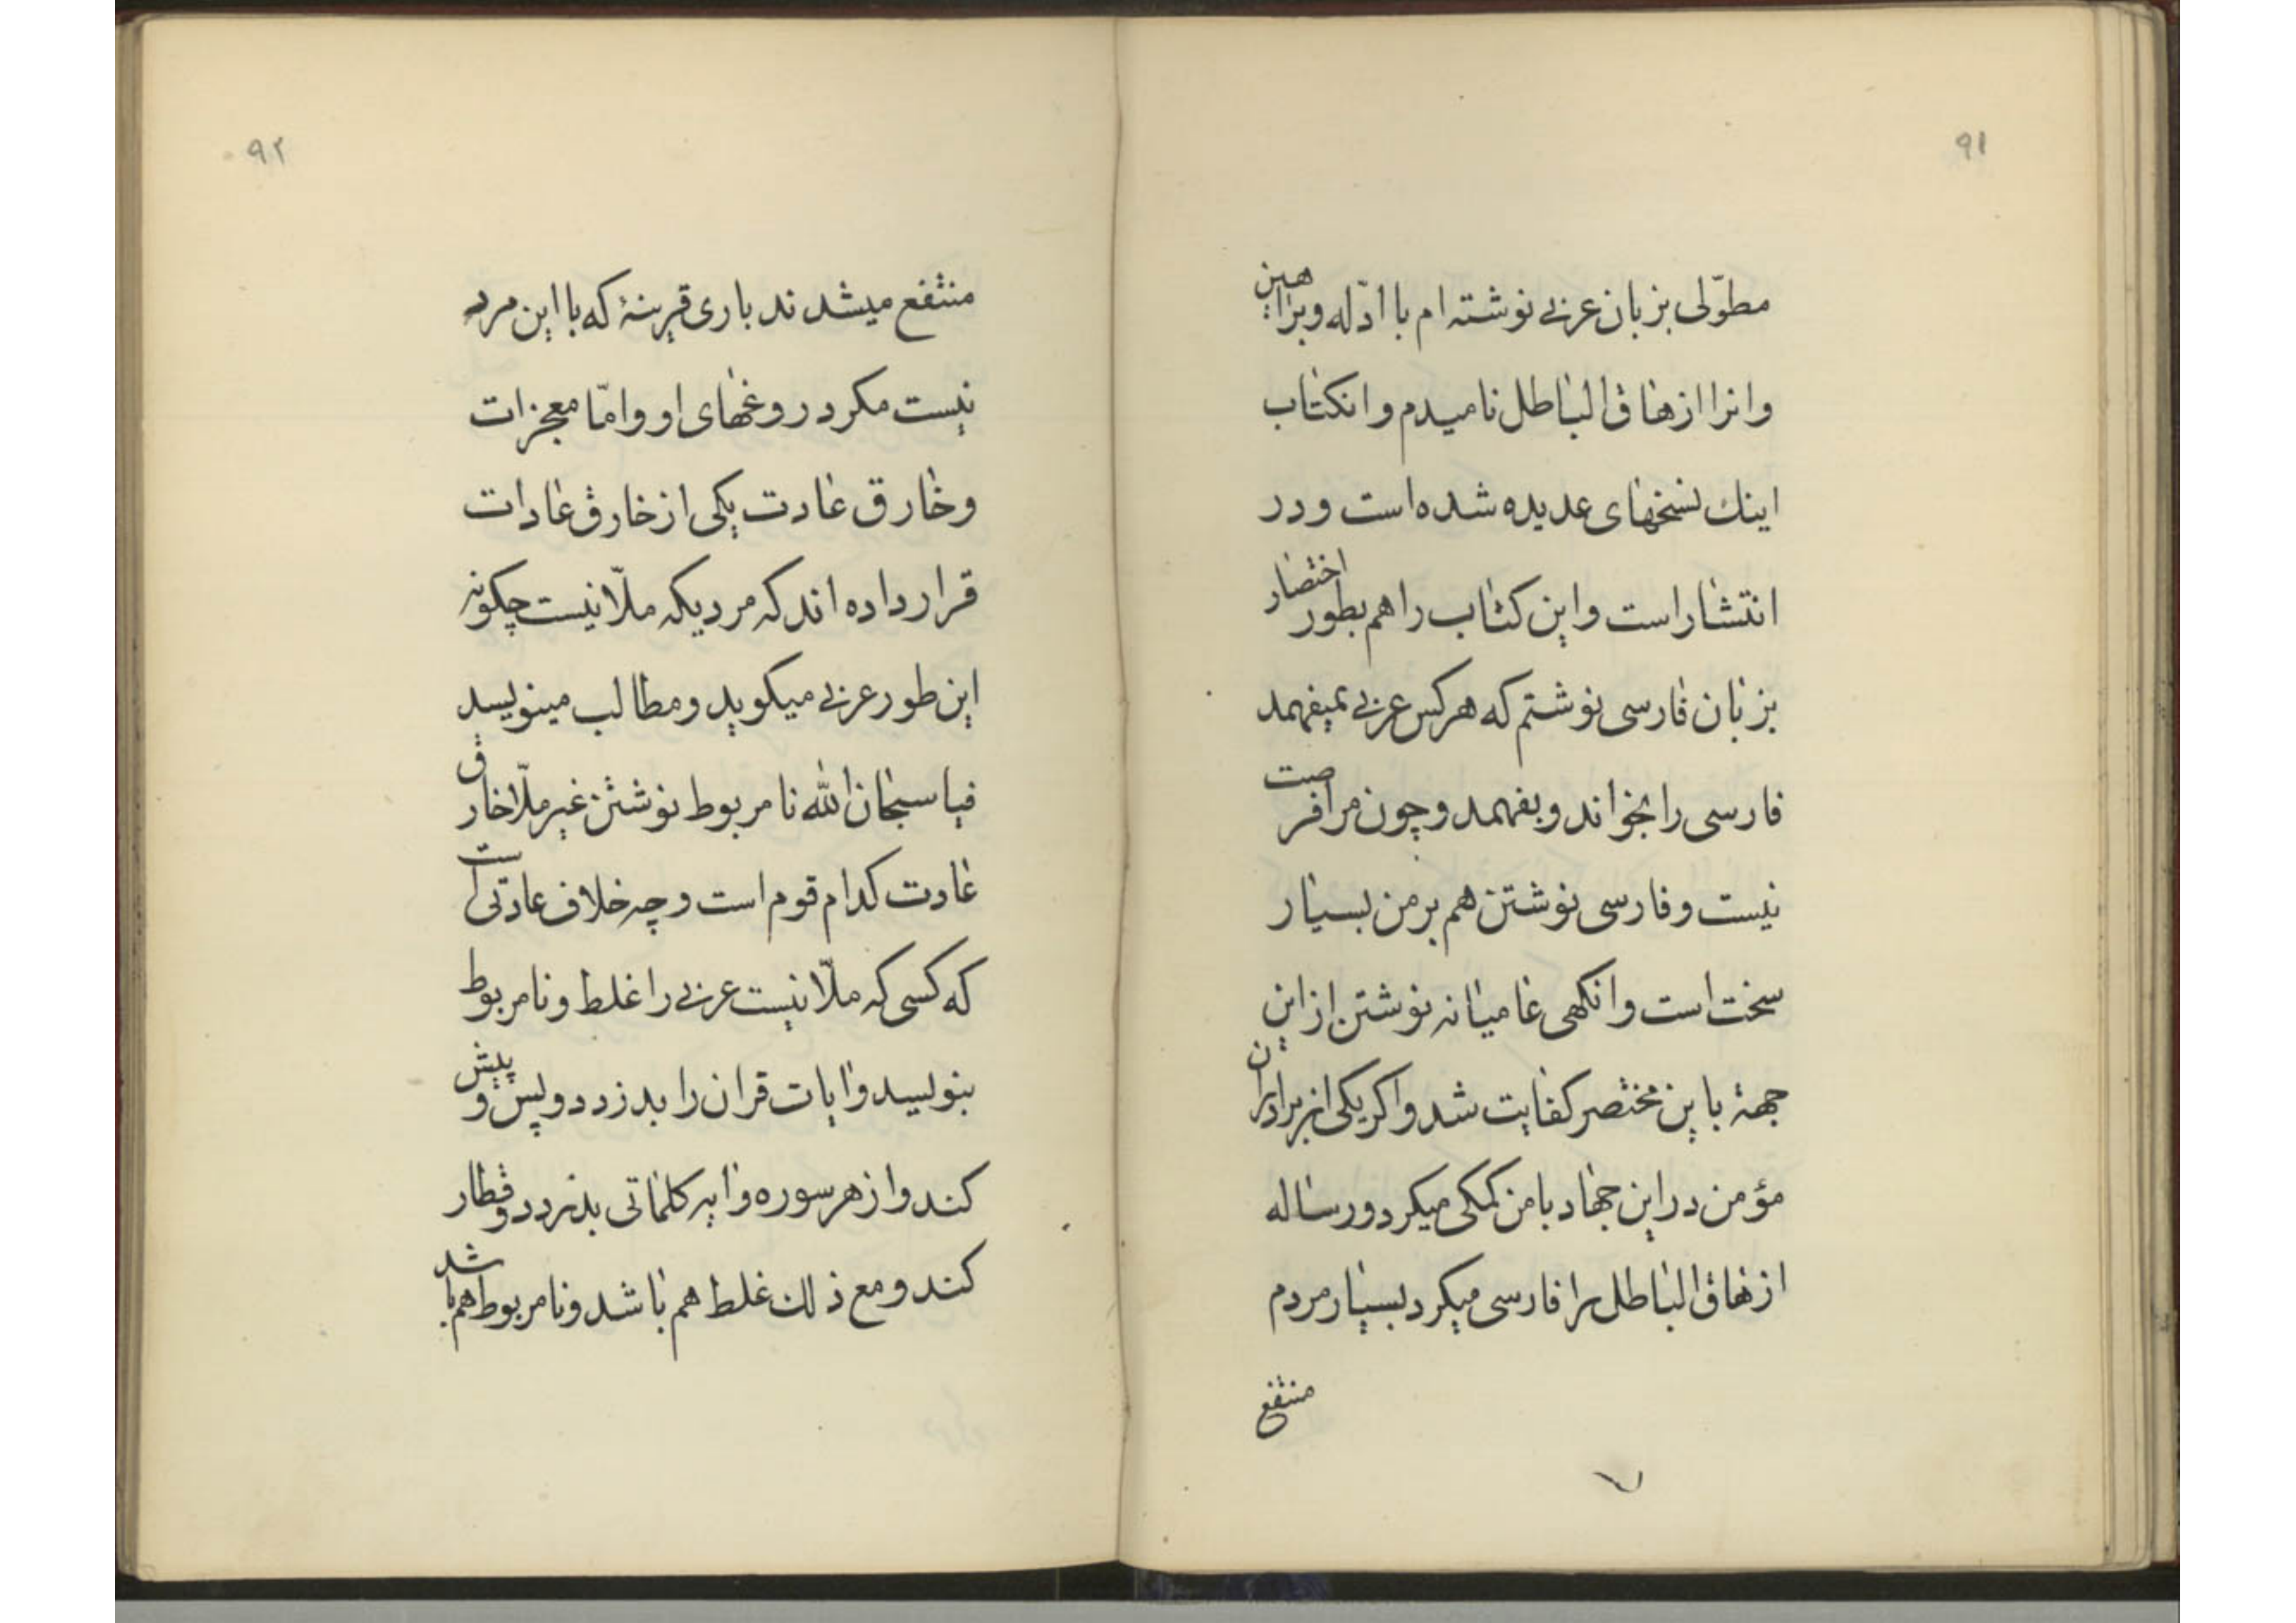 ۹۱
مطوّلی بزبان عربی نوشته ام با ادّله وبراهین
وانرا ازهاق الباطل نامیدم وانکتاب
اینك نسخهای عدیده شده است ودر
انتشار است واین کتاب را هم بطور اختصار
بزبان فارسی نوشتم که هرکس عربی نمیفهمد
فارسی را بخواند وبفهمد وچون مرا فرصت
نیست وفارسی نوشتن هم بر من بسیار
سخت است وانکهی عامیانه نوشتن از این
جهة باین مختصر کفایت شد واکر یکی از برادران
مؤمن در این جهاد با من کمکی میکرد ورساله
ازهاق الباطل را فارسی میکرد بسیار مردم
منتفع
۷
۹۲
منتفع میشدند باری قرینهٔ که با این مرد
نیست مکر دروغهای او وامّا معجزات
وخارق عادت یکی از خارق عادات
قرار داده اند که مردیکه ملّا نیست چکونه
این طور عربی میکوید ومطالب مینویسد
فیا سبحان الله نامربوط نوشتن غیر ملّا خارق
عادت کدام قوم است وچه خلاف عادتی است
که کسی که ملّا نیست عربی را غلط ونامربوط
بنویسد وایات قران را بدزدد وپس وپیش
کند واز هر سوره وایه کلماتی بدزدد وقطار
کند ومع ذلك غلط هم باشد ونامربوط هم باشد